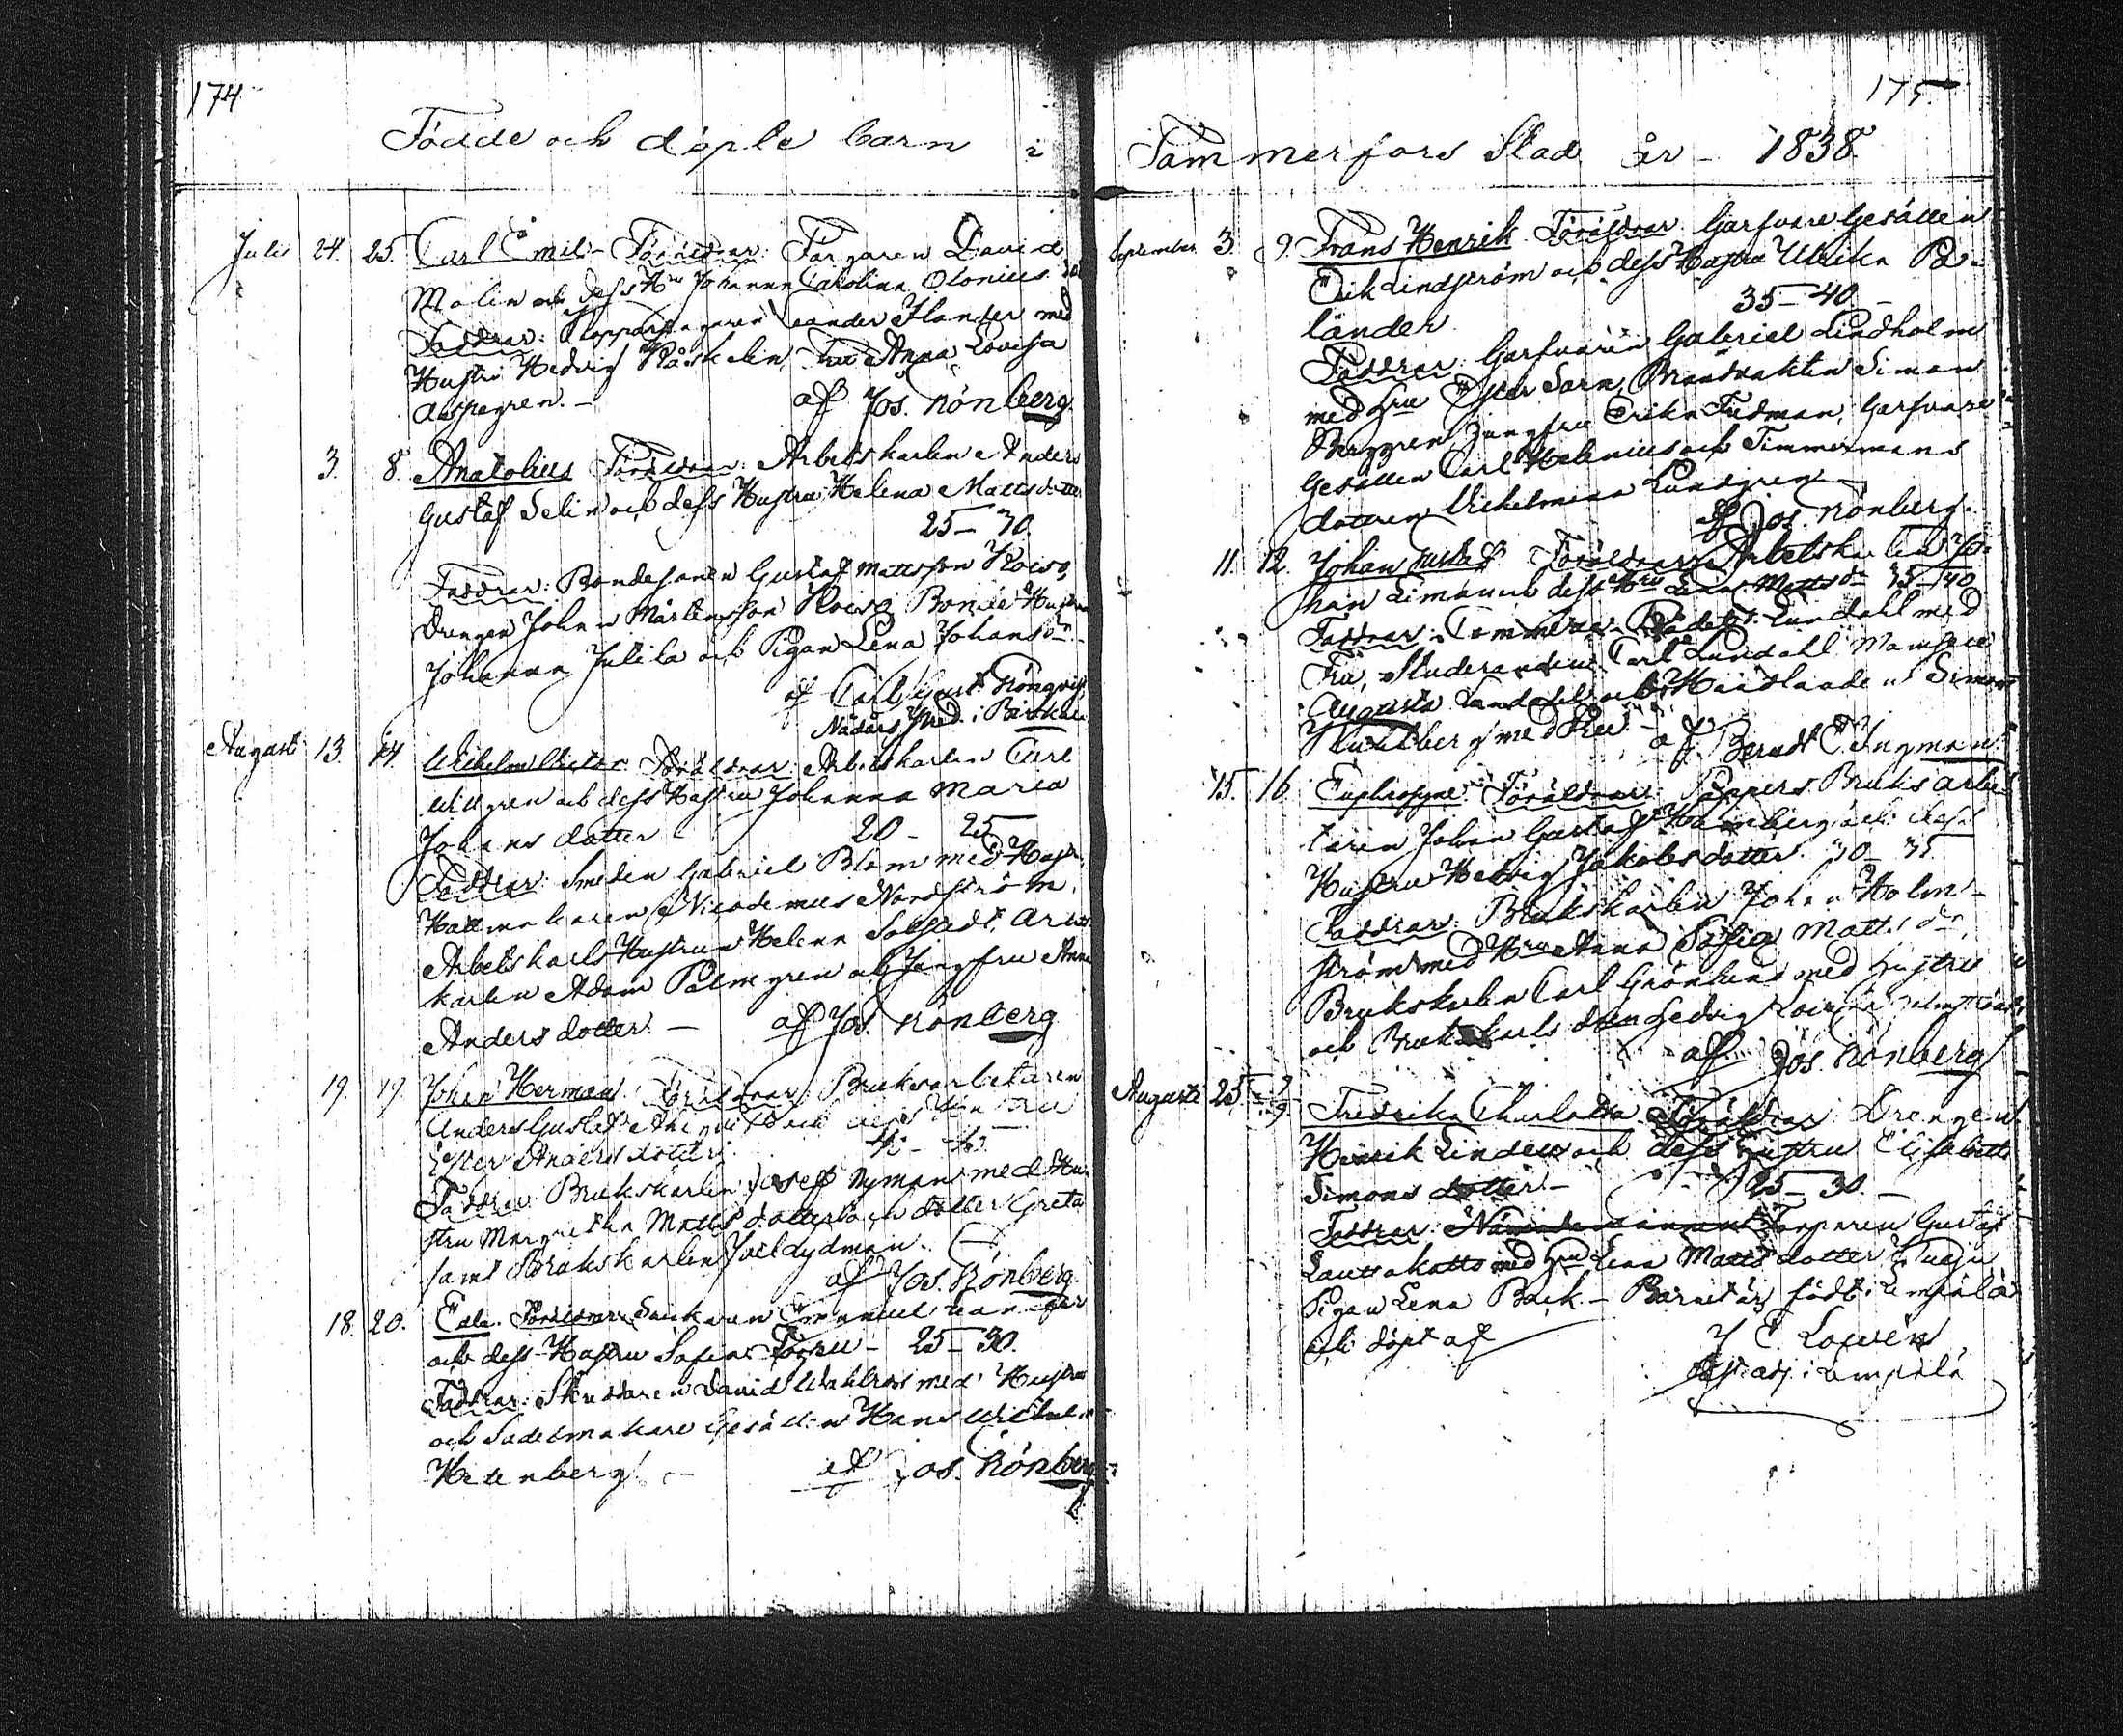 174
Födde och döpte barn i
Julii 24. 25. Carl Emil. Föräldrar: Färgaren David
Malin och dess H:u Johanna Carolina Olonius
Faddrar: Kopparslagaren Leander Ilander med
Hustru Hedvig Råskelin, Fru Anna Lovisa
Aspegren.
af Jos. Rönberg.
3. 8. Anatolius Föräldrar: Arbetskarlen Anders
Gustaf Selin och dess Hustru Helena Mattsdotter
25 - 30.
Faddrar: Bondesonen Gustaf Mattsson
Drengen Johan Mårtensson Bonde Hustrun
Johanna Julila och Pigan Lena Johansd:r
af Carl Gust. Rönqvist
Nådårs Pred. i
Augusti 13. 14. Wilhelm Victor. Föräldrar: Arbetskarlen Carl
Willgren och dess Hustru Johanna Maria
Johansdotter 20 - 25
Faddrar: Smeden Gabriel Blom med Hustru,
Hattmakaren Nicodemus Nordström,
Arbetskarls Hustrun Helena Solstedt, Arbets
karlen Adam Palmgren och Jungfru Anna
Andersdotter. - af Jos. Rönberg
19. 19. Johan Herman. Föräldrar: Bruksarbetaren
Anders Gustaf och dess Hustru
Ester Andersdotter.
Faddrar: Brukskarlen Josef Nyman med Hu-
stru Margaretha Mattsdotter och dotter Greta
samt Brukskarlen Joel Lydman.
af Jos. Rönberg.
18. 20. Eda. Föräldrar: Emanuel
och dess Hustru Sofia - 25 - 30.
Faddrar: Skräddaren David Wahlroos med Hustru
och Sadelmakare Gesällen Hans Wilhelm
af Jos. Rönberg
175.
Tammerfors Stad år - 1838.
September 3. 9. Frans Henrik Föräldrar: Garfvare Gesällen
Erik Lindström och dess Hustru Ulrika Po-
länder. 35 - 40 -
Faddrar: Garfvaren Gabriel Lindholm
med Fru Ester Sarn, Brandvakten Simon
Berggren, Jungfru Erika Fridman, Garfvare
Gesällen Carl Helenius och Timmermans
dottren Vilhelmina Lundgren.
af Jos. Rönberg.
11. 12. Johan Gustaf Föräldrar: Arbetskarlen Jo-
han Liman och dess H:u Lena Mattsd:r 35 - 40
Faddrar: Lundahl med
Fru, Studeranden Carl Lundahl Mamsell
Augusta Lundahl och Handlanden Simon
med Fru - af Berndt E. Ingman.
15. 16. Euphrosyne. Föräldrar: Pappers Bruks arbe-
taren Johan Gustaf Holmberg och dess
Hustru Hedvig Jakobsdotter. 30 - 35
Faddrar: Brukskarlen Johan Holm-
ström med H:ru Anna Sofia Mattsd:r,
Brukskarlen Carl Grönlund med Hustru
och Brukskarls Hedvig
af Jos. Rönberg
Augusti 25. Fredrika Charlotta. Föräldrar: Drengen
Henrik Linden och dess Hustru Elisabeth
Simonsdotter - 25 - 30. -
Faddrar: Torparen Gustaf
med H:ru Lena Mattsdotter
Pigan Lena Back - Barnet är född i Lempälä
och döpt af J. E. Lovén
adj. i Lempälä